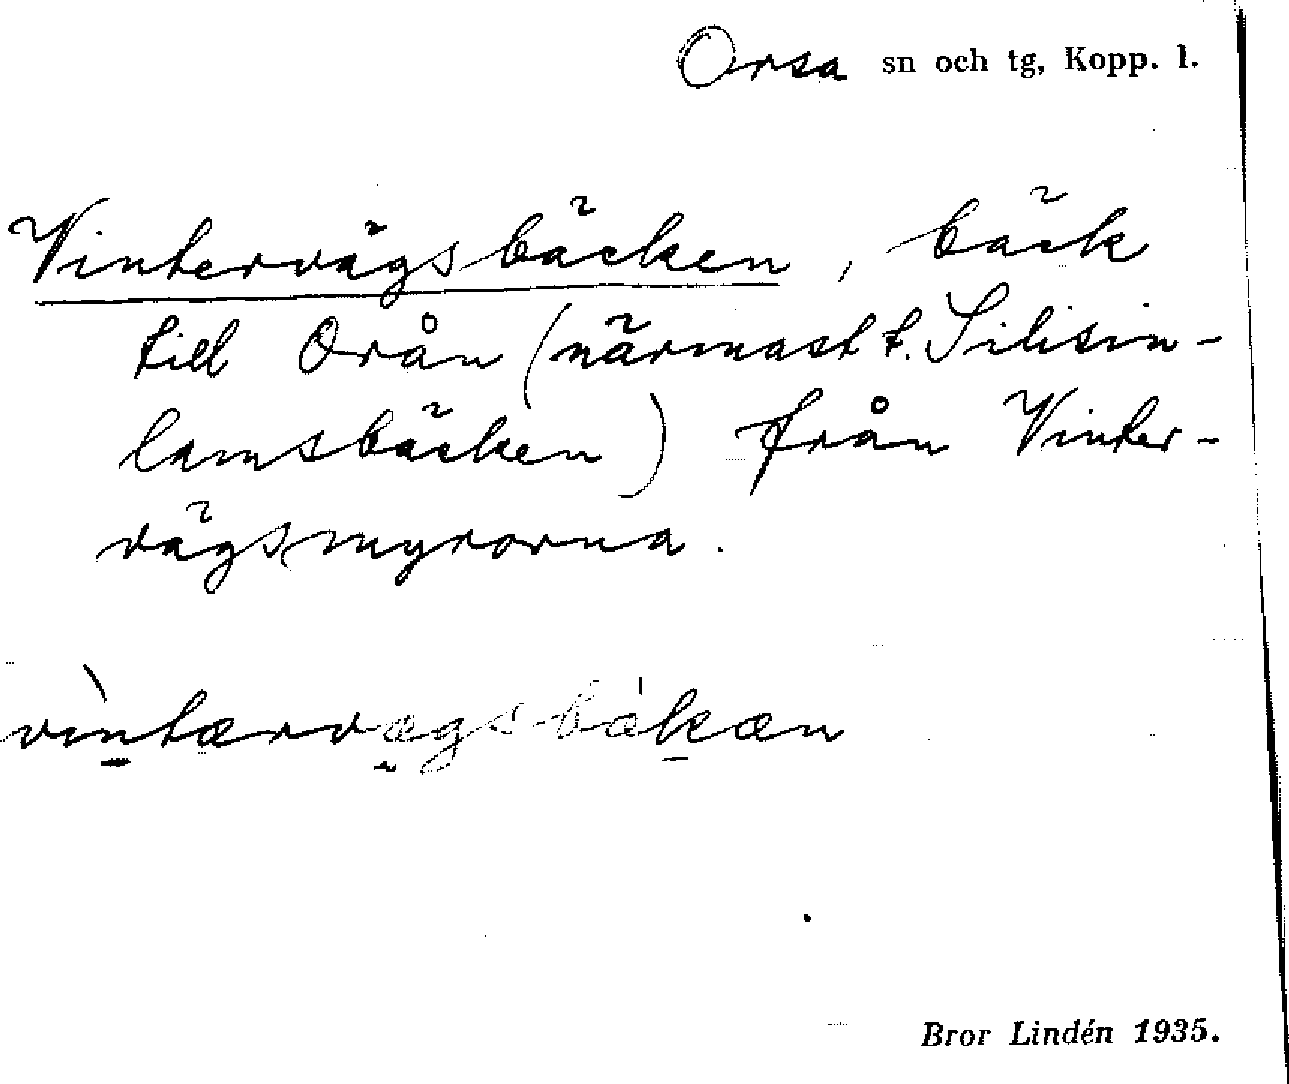 Orsa sn och tg, Kopp. l.
Vintervägsbäcken, bäck
till Orån (närmast t. Silisin-
lamsbäcken) från Vinter-
vägsmyrorna.
vìntærvægsbä́kæn
Bror Lindén 1935.